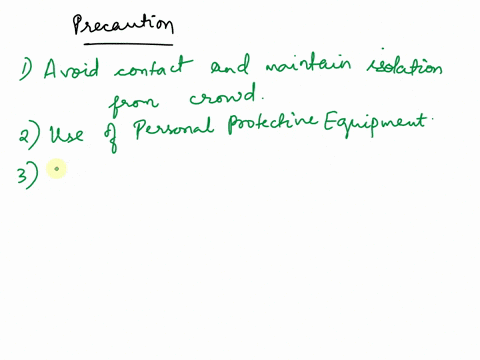 Precaution
1) Avoid contact and maintain isolation
from crowd.
2) Use of Personal Protective Equipment.
3)